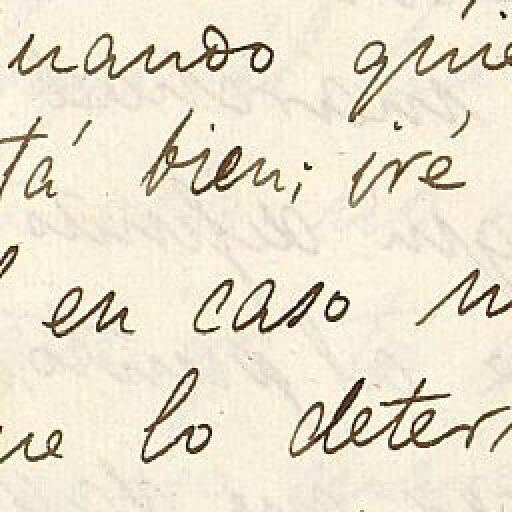 uando quie
tá bien; iré
en caso n
ue lo deter